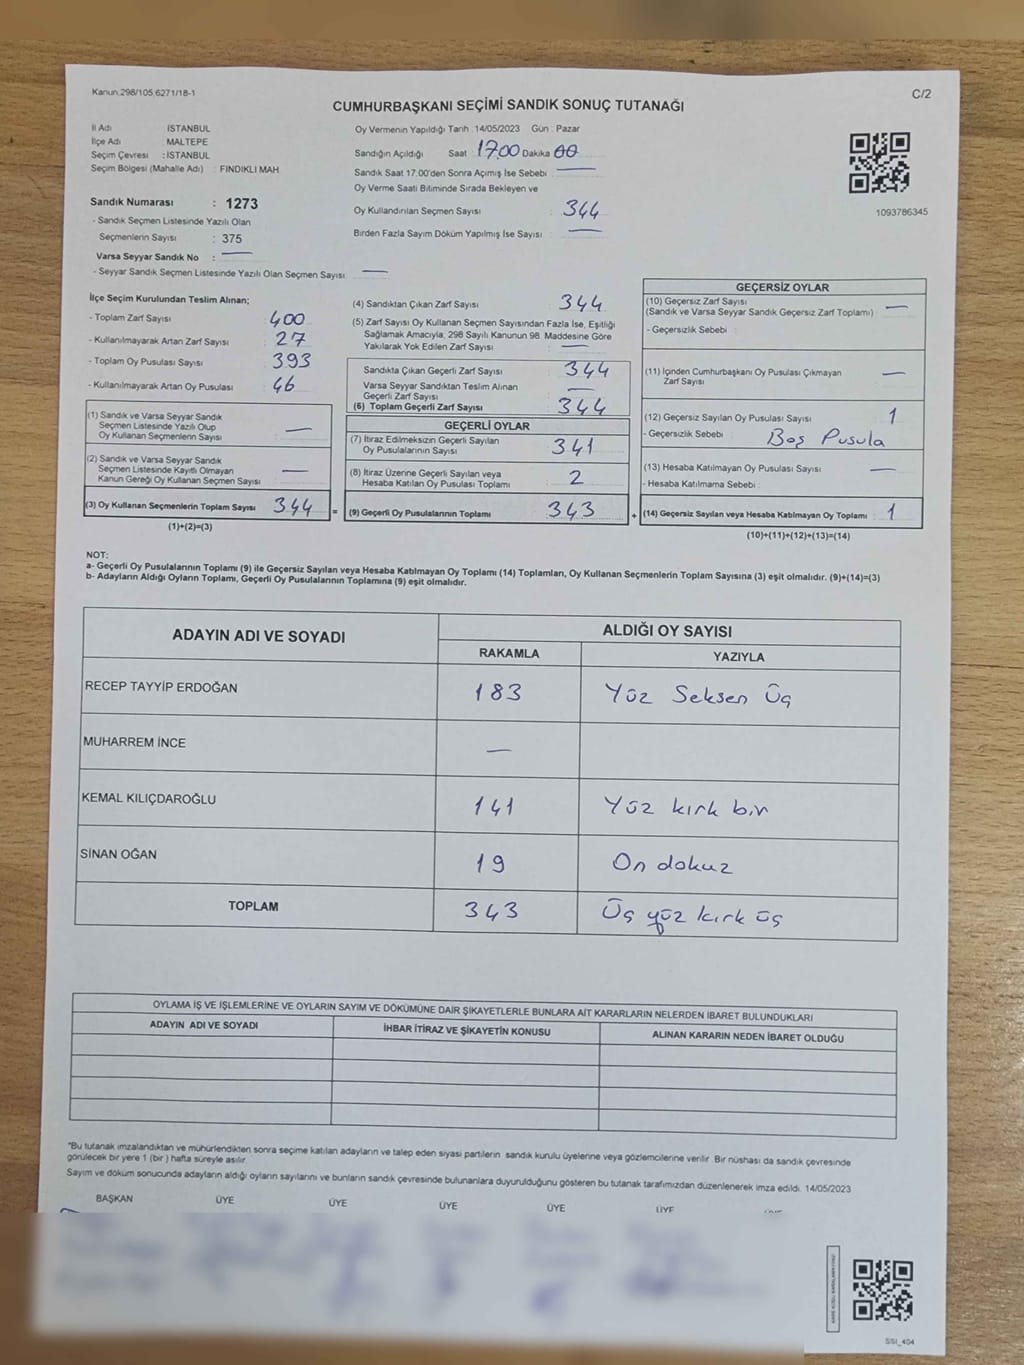 Kanun.298/105 6271/18-1
C/2
CUMHURBAŞKANI SEÇİMİ SANDIK SONUÇ TUTANAĞI
İl Adı İSTANBUL
İlçe Adı MALTEPE
Seçim Çevresi : İSTANBUL
Seçim Bölgesi (Mahalle Adı) : FINDIKLI MAH
Sandık Numarası : 1273
- Sandık Seçmen Listesinde Yazılı Olan
Seçmenlerin Sayısı : 375
Varsa Seyyar Sandık No : —
- Seyyar Sandık Seçmen Listesinde Yazılı Olan Seçmen Sayısı: —
Oy Vermenin Yapıldığı Tarih :14/05/2023 Gün : Pazar
Sandığın Açıldığı Saat : 17.00 Dakika 00
Sandık Saat 17:00'den Sonra Açımış İse Sebebi : —
Oy Verme Saati Bitiminde Sırada Bekleyen ve
Oy Kullandırılan Seçmen Sayısı : 344
Birden Fazla Sayım Döküm Yapılmış İse Sayısı : —
1093786345
İlçe Seçim Kurulundan Teslim Alınan;
- Toplam Zarf Sayısı : 400
- Kullanılmayarak Artan Zarf Sayısı : 27
- Toplam Oy Pusulası Sayısı : 393
- Kullanılmayarak Artan Oy Pusulası : 46
(1) Sandık ve Varsa Seyyar Sandık
Seçmen Listesinde Yazılı Olup
Oy Kullanan Seçmenlerin Sayısı : —
(2) Sandık ve Varsa Seyyar Sandık
Seçmen Listesinde Kayıtlı Olmayan
Kanun Gereği Oy Kullanan Seçmen Sayısı : —
(3) Oy Kullanan Seçmenlerin Toplam Sayısı : 344
(1)+(2)=(3)
=
(4) Sandıktan Çıkan Zarf Sayısı : 344
(5) Zarf Sayısı Oy Kullanan Seçmen Sayısından Fazla İse, Eşitliği
Sağlamak Amacıyla; 298 Sayılı Kanunun 98. Maddesine Göre
Yakılarak Yok Edilen Zarf Sayısı : —
Sandıkta Çıkan Geçerli Zarf Sayısı : 344
Varsa Seyyar Sandıktan Teslim Alınan
Geçerli Zarf Sayısı : —
(6) Toplam Geçerli Zarf Sayısı : 344
GEÇERLİ OYLAR
(7) İtiraz Edilmeksizin Geçerli Sayılan
Oy Pusulalarının Sayısı : 341
(8) İtiraz Üzerine Geçerli Sayılan veya
Hesaba Katılan Oy Pusulası Toplamı : 2
(9) Geçerli Oy Pusulalarının Toplamı : 343
+
GEÇERSİZ OYLAR
(10) Geçersiz Zarf Sayısı : —
(Sandık ve Varsa Seyyar Sandık Geçersiz Zarf Toplamı)
- Geçersizlik Sebebi :
(11) İçinden Cumhurbaşkanı Oy Pusulası Çıkmayan
Zarf Sayısı : —
(12) Geçersiz Sayılan Oy Pusulası Sayısı : 1
- Geçersizlik Sebebi : Boş Pusula
(13) Hesaba Katılmayan Oy Pusulası Sayısı : —
- Hesaba Katılmama Sebebi :
(14) Geçersiz Sayılan veya Hesaba Katılmayan Oy Toplamı : 1
(10)+(11)+(12)+(13)=(14)
NOT:
a- Geçerli Oy Pusulalarının Toplamı (9) ile Geçersiz Sayılan veya Hesaba Katılmayan Oy Toplamı (14) Toplamları, Oy Kullanan Seçmenlerin Toplam Sayısına (3) eşit olmalıdır. (9)+(14)=(3)
b- Adayların Aldığı Oyların Toplamı, Geçerli Oy Pusulalarının Toplamına (9) eşit olmalıdır.
ADAYIN ADI VE SOYADI
ALDIĞI OY SAYISI
RAKAMLA YAZIYLA
RECEP TAYYİP ERDOĞAN 183 Yüz Seksen Üç
MUHARREM İNCE —
KEMAL KILIÇDAROĞLU 141 Yüz kırk bir
SİNAN OĞAN 19 On dokuz
TOPLAM 343 Üç yüz kırk üç
OYLAMA İŞ VE İŞLEMLERİNE VE OYLARIN SAYIM VE DÖKÜMÜNE DAİR ŞİKAYETLERLE BUNLARA AİT KARARLARIN NELERDEN İBARET BULUNDUKLARI
ADAYIN ADI VE SOYADI İHBAR İTİRAZ VE ŞİKAYETİN KONUSU ALINAN KARARIN NEDEN İBARET OLDUĞU
"Bu tutanak imzalandıktan ve mühürlendikten sonra seçime katılan adayların ve talep eden siyasi partilerin sandık kurulu üyelerine veya gözlemcilerine verilir. Bir nüshası da sandık çevresinde
görülecek bir yere 1 (bir ) hafta süreyle asılır.
Sayım ve döküm sonucunda adayların aldığı oyların sayılarını ve bunların sandık çevresinde bulunanlara duyurulduğunu gösteren bu tutanak tarafımızdan düzenlenerek imza edildi. 14/05/2023
BAŞKAN ÜYE ÜYE ÜYE ÜYE ÜYE
SSI_404